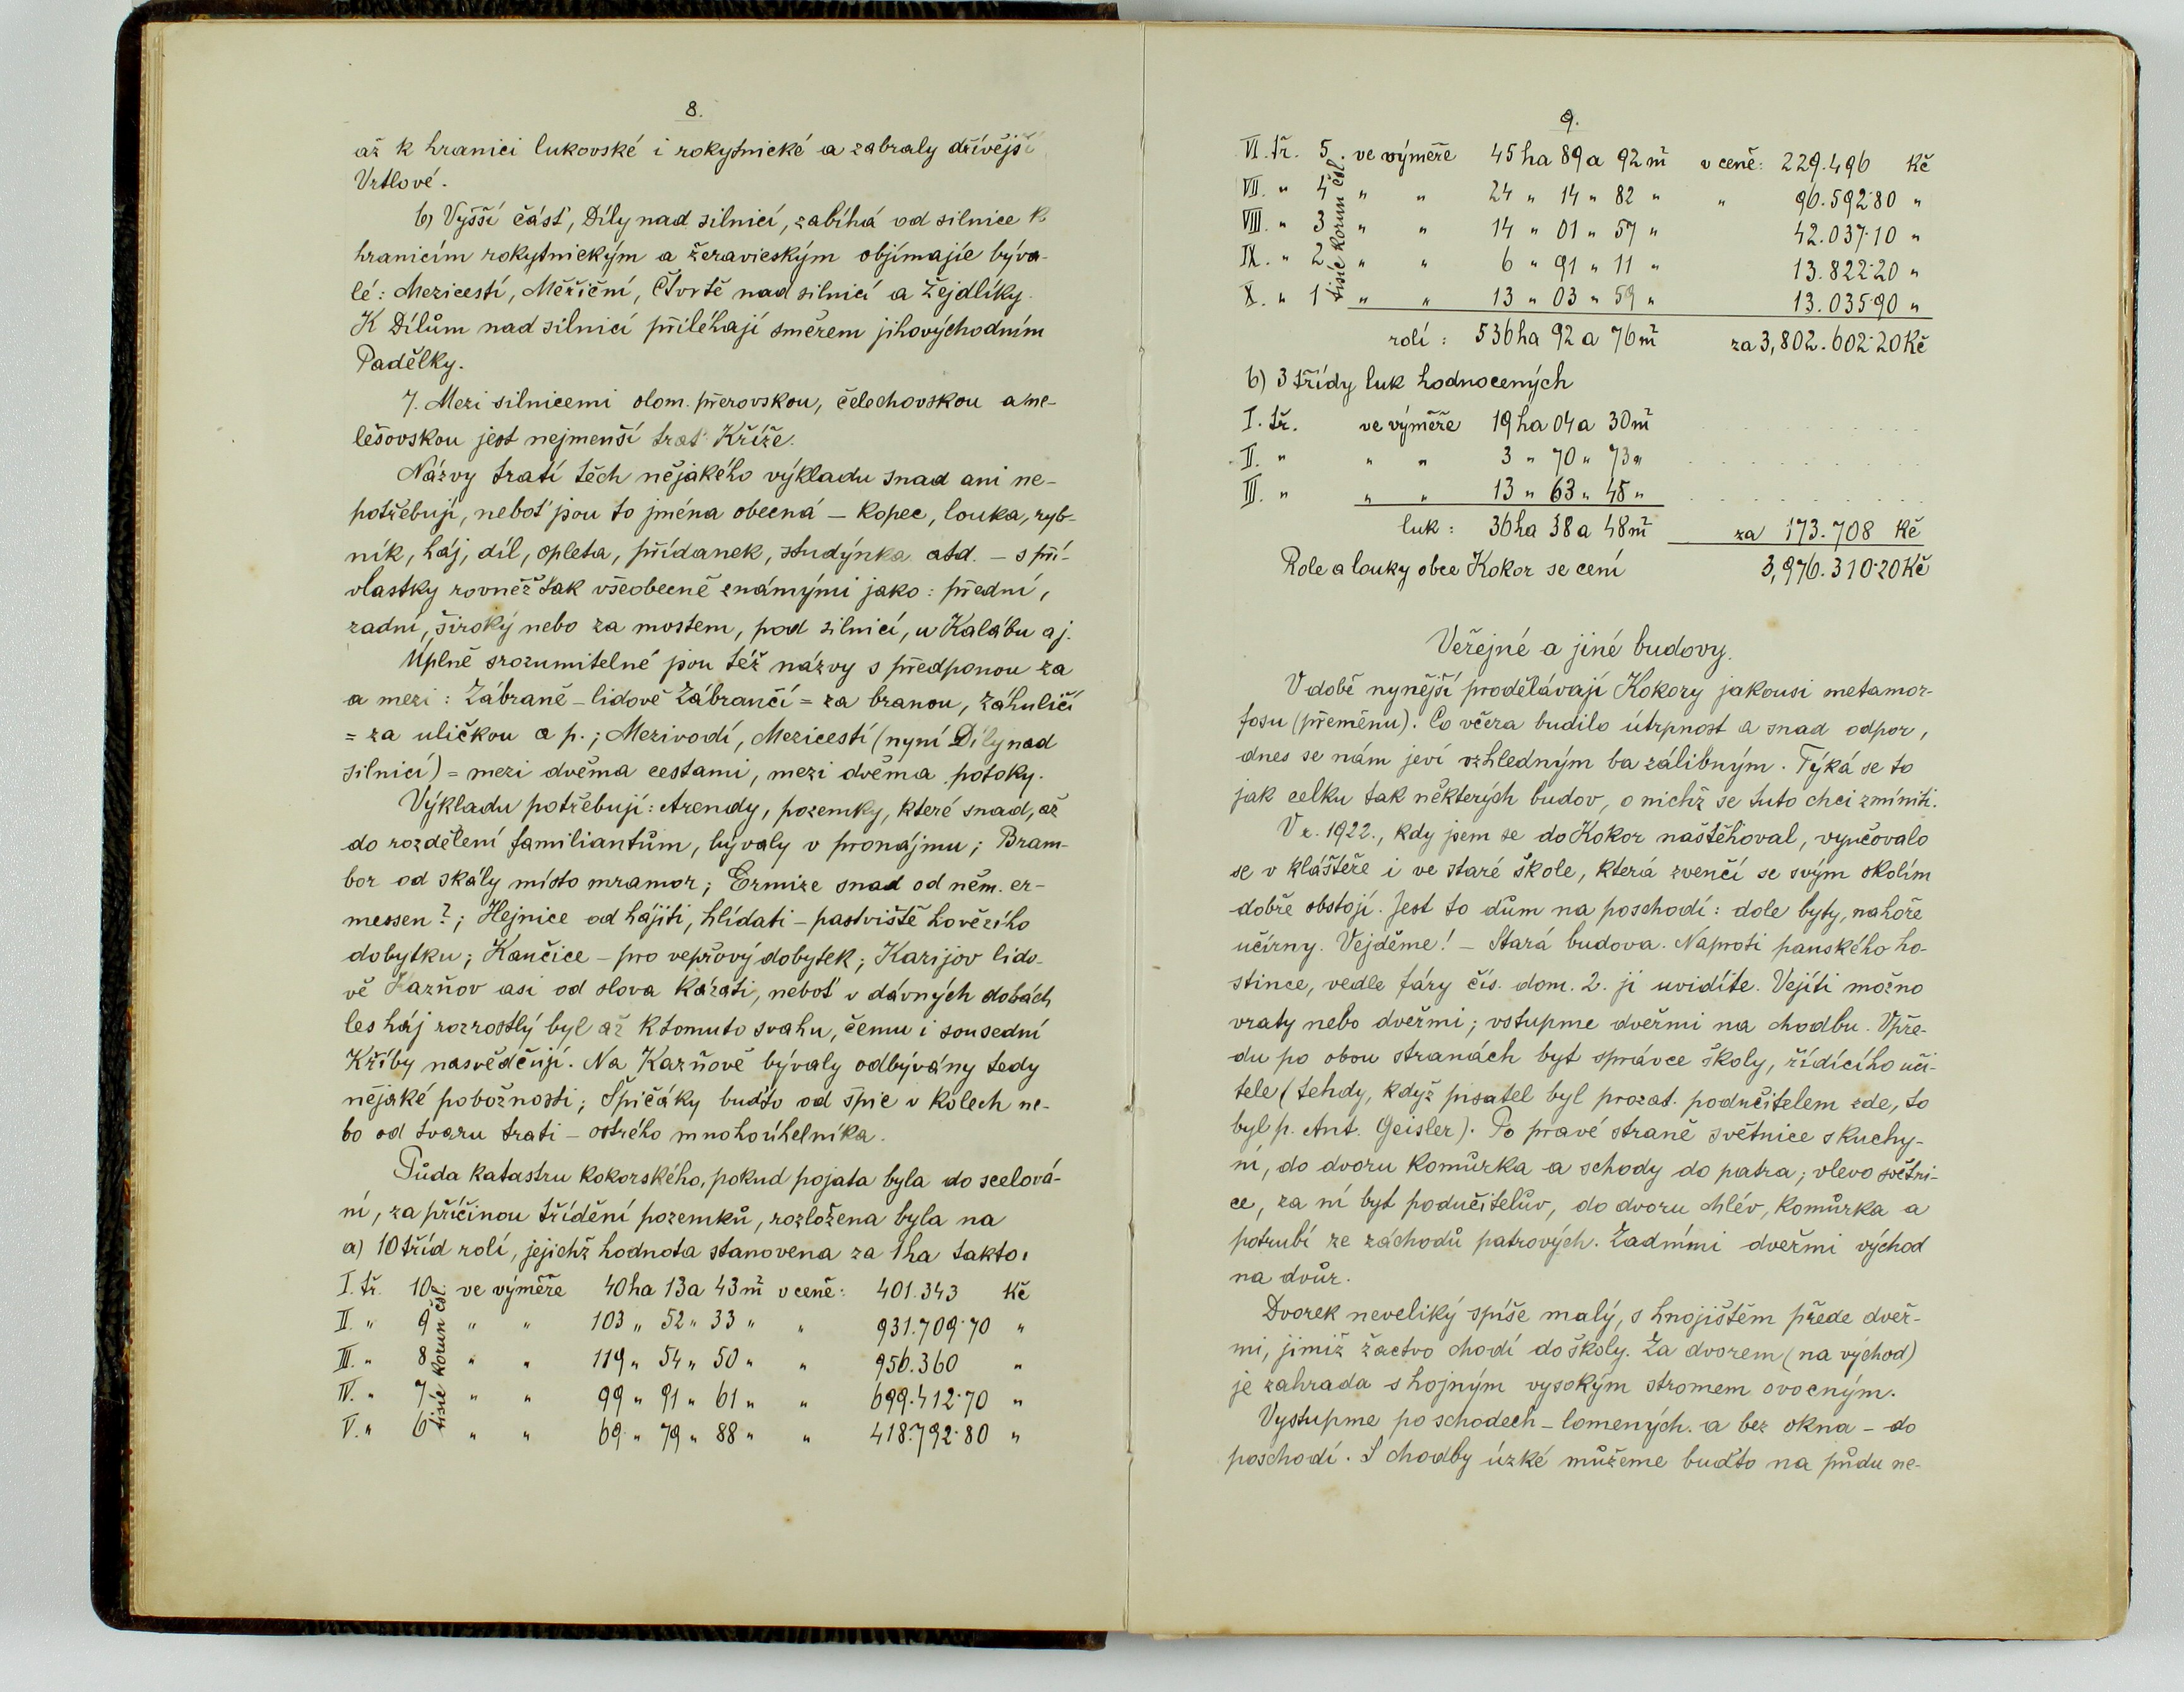 8.
až k hranici lukovské i rokytnické a zabraly dřívější
Vrtlové.
b) Vyšší část, Díly nad silnicí, zabíhá od silnice k
hranicím rokytnickým a žeravickým objímajíc býva-
lé: Mezicestí, Měřiční, Čtvrtě nad silnicí a Žejdlíky.
K Dílům nad silnicí přiléhají směrem jihovýchodním
Padělky.
7. Mezi silnicemi olom. přerovskou, čelechovskou a ne-
lešovskou jest nejmenší trať Kříže.
Názvy tratí těch nějakého výkladu snad ani ne-
potřebují, neboť jsou to jména obecná – kopec, louka, ryb-
ník, háj, díl, opleta, přídanek, studýnka atd. – s pří-
vlastky rovněž tak všeobecně známými jako: přední,
zadní, široký nebo za mostem, pod silnicí, u Kalábu aj.
Úplně srozumitelné jsou též názvy s předponou za
a mezi: Zábraně – lidově Zábrančí = za branou, Záhuličí
= za uličkou a p.; Mezivodí, Mezicestí (nyní Díly nad
silnicí) = mezi dvěma cestami, mezi dvěma potoky.
Výkladu potřebují: Arendy, pozemky, které snad, až
do rozdělení familiantům, bývaly v pronájmu; Bram-
bor od skály místo mramor; Ermize snad od něm. er-
messen?; Hejnice od hájiti, hlídati – pastviště hovězího
dobytku; Kančice – pro vepřový dobytek; Karijov lido-
vě Kazňov asi od slova kázati, neboť v dávných dobách
les háj rozrostlý byl až k tomuto svahu, čemu i sousední
Kříby nasvědčují. Na Kazňově bývaly odbývány tedy
nějaké pobožnosti; Špičáky buďto od špic v kolech ne-
bo od tvaru trati – ostrého mnohoúhelníka.
Půda katastru kokorského, pokud pojata byla do scelová-
ní, za příčinou třídění pozemků, rozložena byla na
a) 10 tříd rolí, jejichž hodnota stanovena za 1 ha takto:
I. tř. 10 ve výměře 40 ha 13 a 43 m² v ceně: 401.343 Kč
II. " 9 " " 103 " 52 " 33 " " 931.709·70 "
III. " 8 " " 119 " 54 " 50 " " 956.360 "
IV. " 7 " " 99 " 91 " 61 " " 699.412·70 "
V. " 6 " " 69 " 79 " 88 " " 418.792·80 "
tisíc korun čsl.
9.
VI. tř. 5. ve výměře 45 ha 89 a 92 m² v ceně: 229.496 Kč
VII. " 4 " " 24 " 14 " 82 " " 96.592·80 "
VIII. " 3 " " 14 " 01 " 57 " 42.037·10 "
IX. " 2 " " 6 " 91 " 11 " 13.822·20 "
X. " 1 " " 13 " 03 " 59 " 13.035·90 "
tisíc korun čsl.
rolí: 536 ha 92 a 76 m² za 3,802.602·20 Kč
b) 3 třídy luk hodnocených
I. tř. ve výměře 19 ha 04 a 30 m²
II. " " " 3 " 70 " 73 "
III. " " " 13 " 63 " 45 "
luk: 36 ha 38 a 48 m² za 173.708 Kč
Role a louky obce Kokor se cení 3,976.310·20 Kč
Veřejné a jiné budovy.
V době nynější prodělávají Kokory jakousi metamor-
fosu (přeměnu). Co včera budilo útrpnost a snad odpor,
dnes se nám jeví vzhledným ba zálibným. Týká se to
jak celku tak některých budov, o nichž se tuto chci zmíniti.
V r. 1922., kdy jsem se do Kokor naštěhoval, vyučovalo
se v klášteře i ve staré škole, která zvenčí se svým okolím
dobře obstojí. Jest to dům na poschodí: dole byty, nahoře
učírny. Vejděme! – Stará budova. Naproti panského ho-
stince, vedle fáry čís. dom. 2. ji uvidíte. Vejíti možno
vraty nebo dveřmi; vstupme dveřmi na chodbu. Vpře-
du po obou stranách byt správce školy, řídícího uči-
tele (tehdy, když pisatel byl prozat. podučitelem zde, to
byl p. Ant. Geisler). Po pravé straně světnice s kuchy-
ní, do dvoru komůrka a schody do patra; vlevo světni-
ce, za ní byt podučitelův, do dvoru chlév, komůrka a
potrubí ze záchodů patrových. Zadními dveřmi východ
na dvůr.
Dvorek neveliký spíše malý, s hnojištěm přede dveř-
mi, jimiž žactvo chodí do školy. Za dvorem (na východ)
je zahrada s hojným vysokým stromem ovocným.
Vystupme po schodech – lomených a bez okna – do
poschodí. S chodby úzké můžeme buďto na půdu ne-